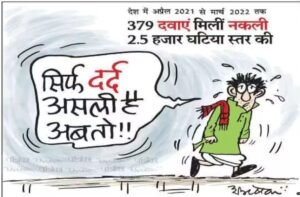 देश में अप्रैल 2021 से मार्च 2022 तक
379 दवाएं मिलीं नकली
2.5 हजार घटिया स्तर की
सिर्फ दर्द
असली है
अब तो!!